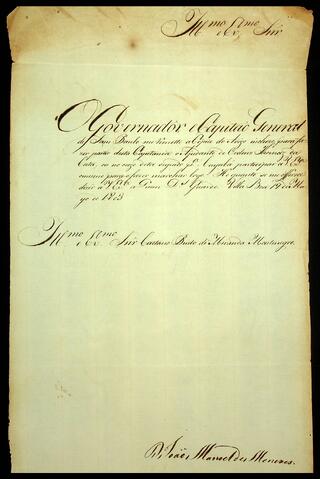 Illmo Exmo
e Ex. Snr
O Governador e Capitão General
de Sam Paulo me remette a Copia do Avizo incluzo para fa
zer partir desta Capitania o Ajudante de Ordens Thomaz da
Costa, se no cazo de ter chegado de Angola participar a V. Exa.
para o fazer marchar logo. He quanto se me offerece
dizer a V. Exa. Deos Gde Villa Boa 19 de
de 1803
Illmo Exmo
e Ex. Snr Caetano Pinto de Miranda Montenegro
D. João Manoel de Menezes